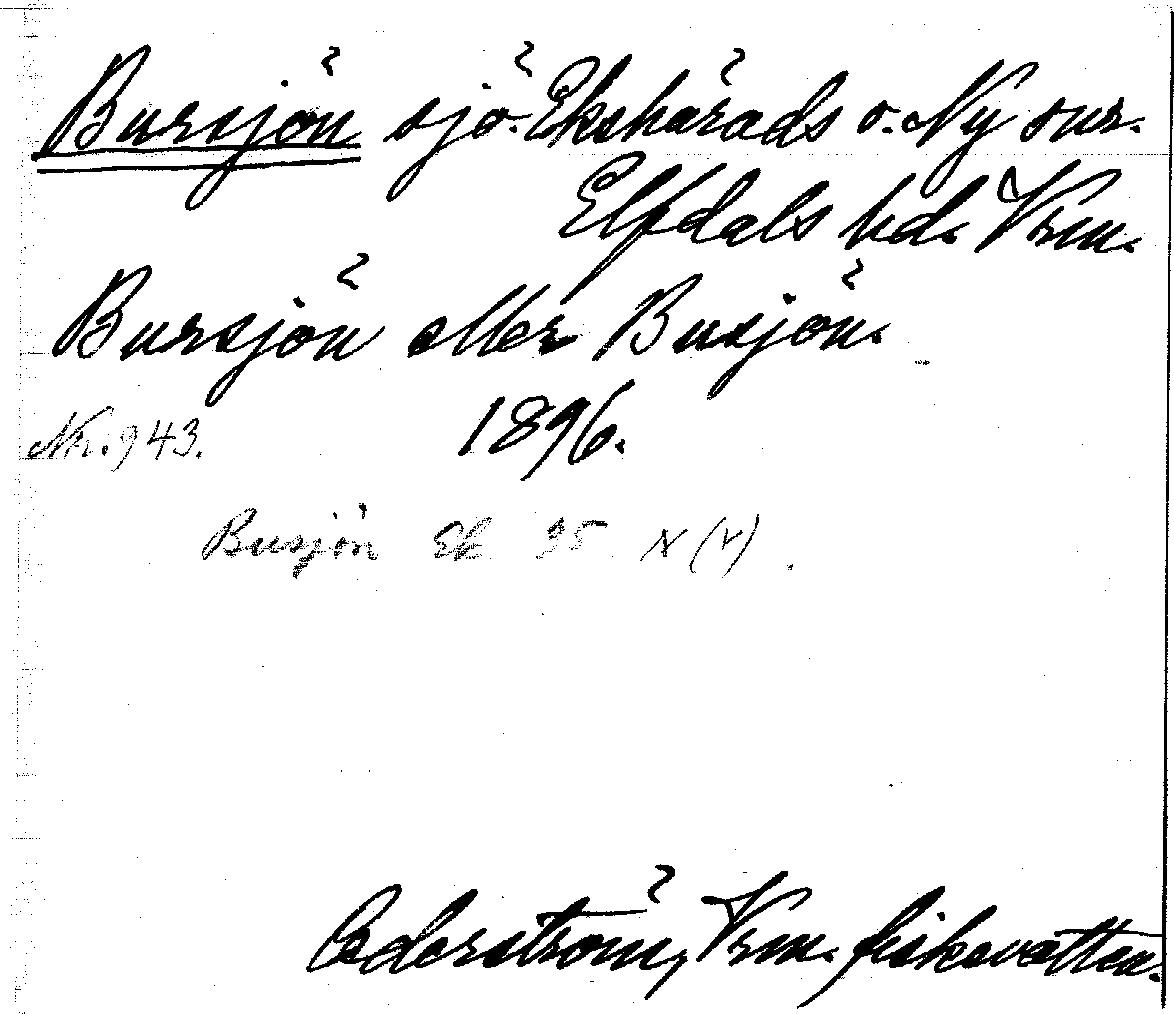 Bursjön sjö. Ekshärads o. Ny snr.
Elfdals hd. Vrm.
Bursjön eller Busjön.
Nr. 943. 1896.
Busjön Ek 35 N (V).
Cederström, Vrm. fiskevatten.